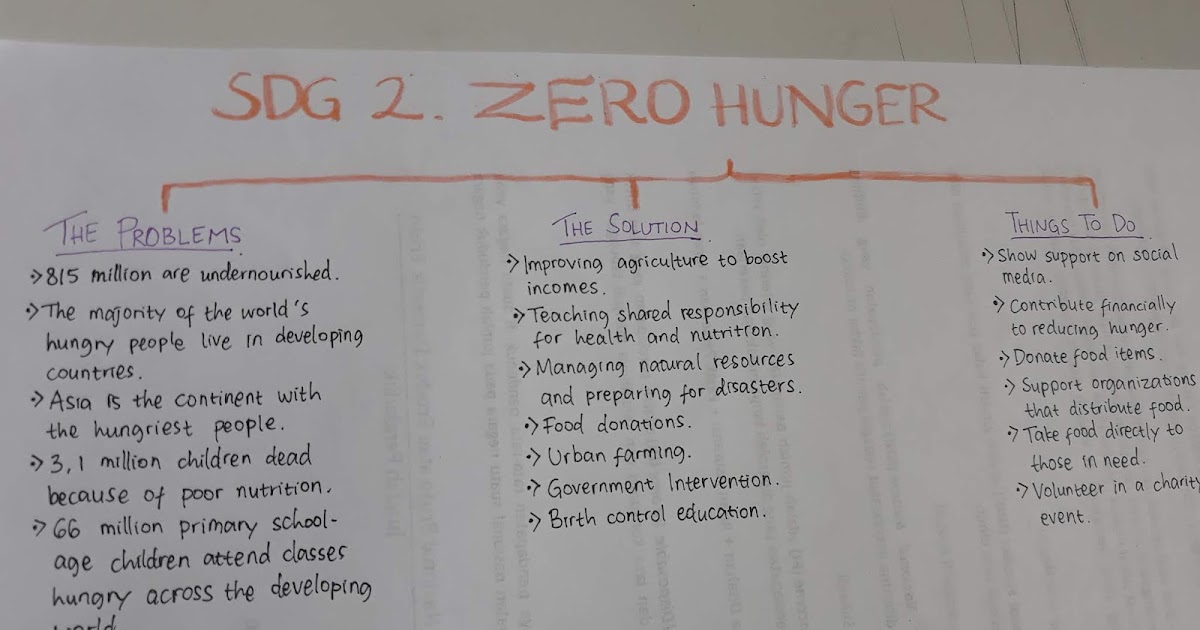 SDG 2. ZERO HUNGER
THE PROBLEMS
815 million are undernourished.
The majority of the world's
hungry people live in developing
countries.
Asia is the continent with
the hungriest people.
3,1 million children dead
because of poor nutrition.
66 million primary school-
age children attend classes
hungry across the developing
world
THE SOLUTION
Improving agriculture to boost
incomes.
Teaching shared responsibility
for health and nutrition.
Managing natural resources
and preparing for disasters.
Food donations.
Urban farming.
Government Intervention.
Birth control education.
THINGS TO DO
Show support on social
media.
Contribute financially
to reducing hunger.
Donate food items.
Support organizations
that distribute food.
Take food directly to
those in need.
Volunteer in a charity
event.